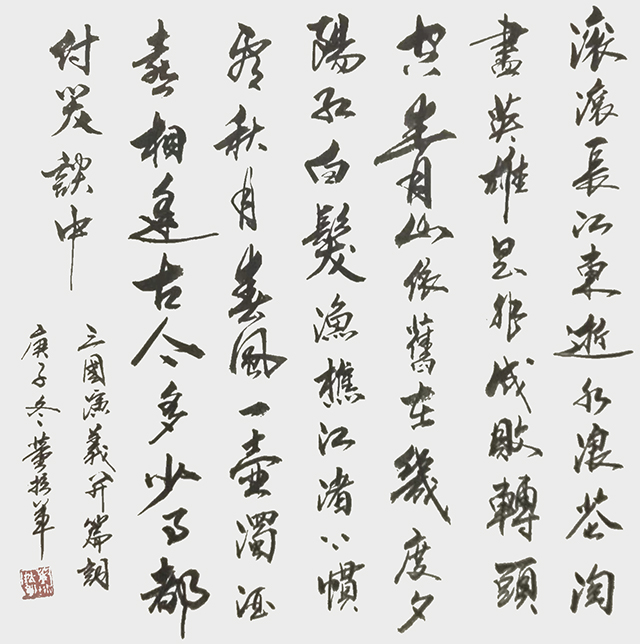 滚滚長江東逝水浪花淘
盡英雄是非成敗轉頭
空青山依舊在幾度夕
陽紅白髮漁樵江渚上慣
看秋月春風一壺濁酒
喜相逢古今多少事都
付笑談中
三國演義开篇詞
庚子冬董